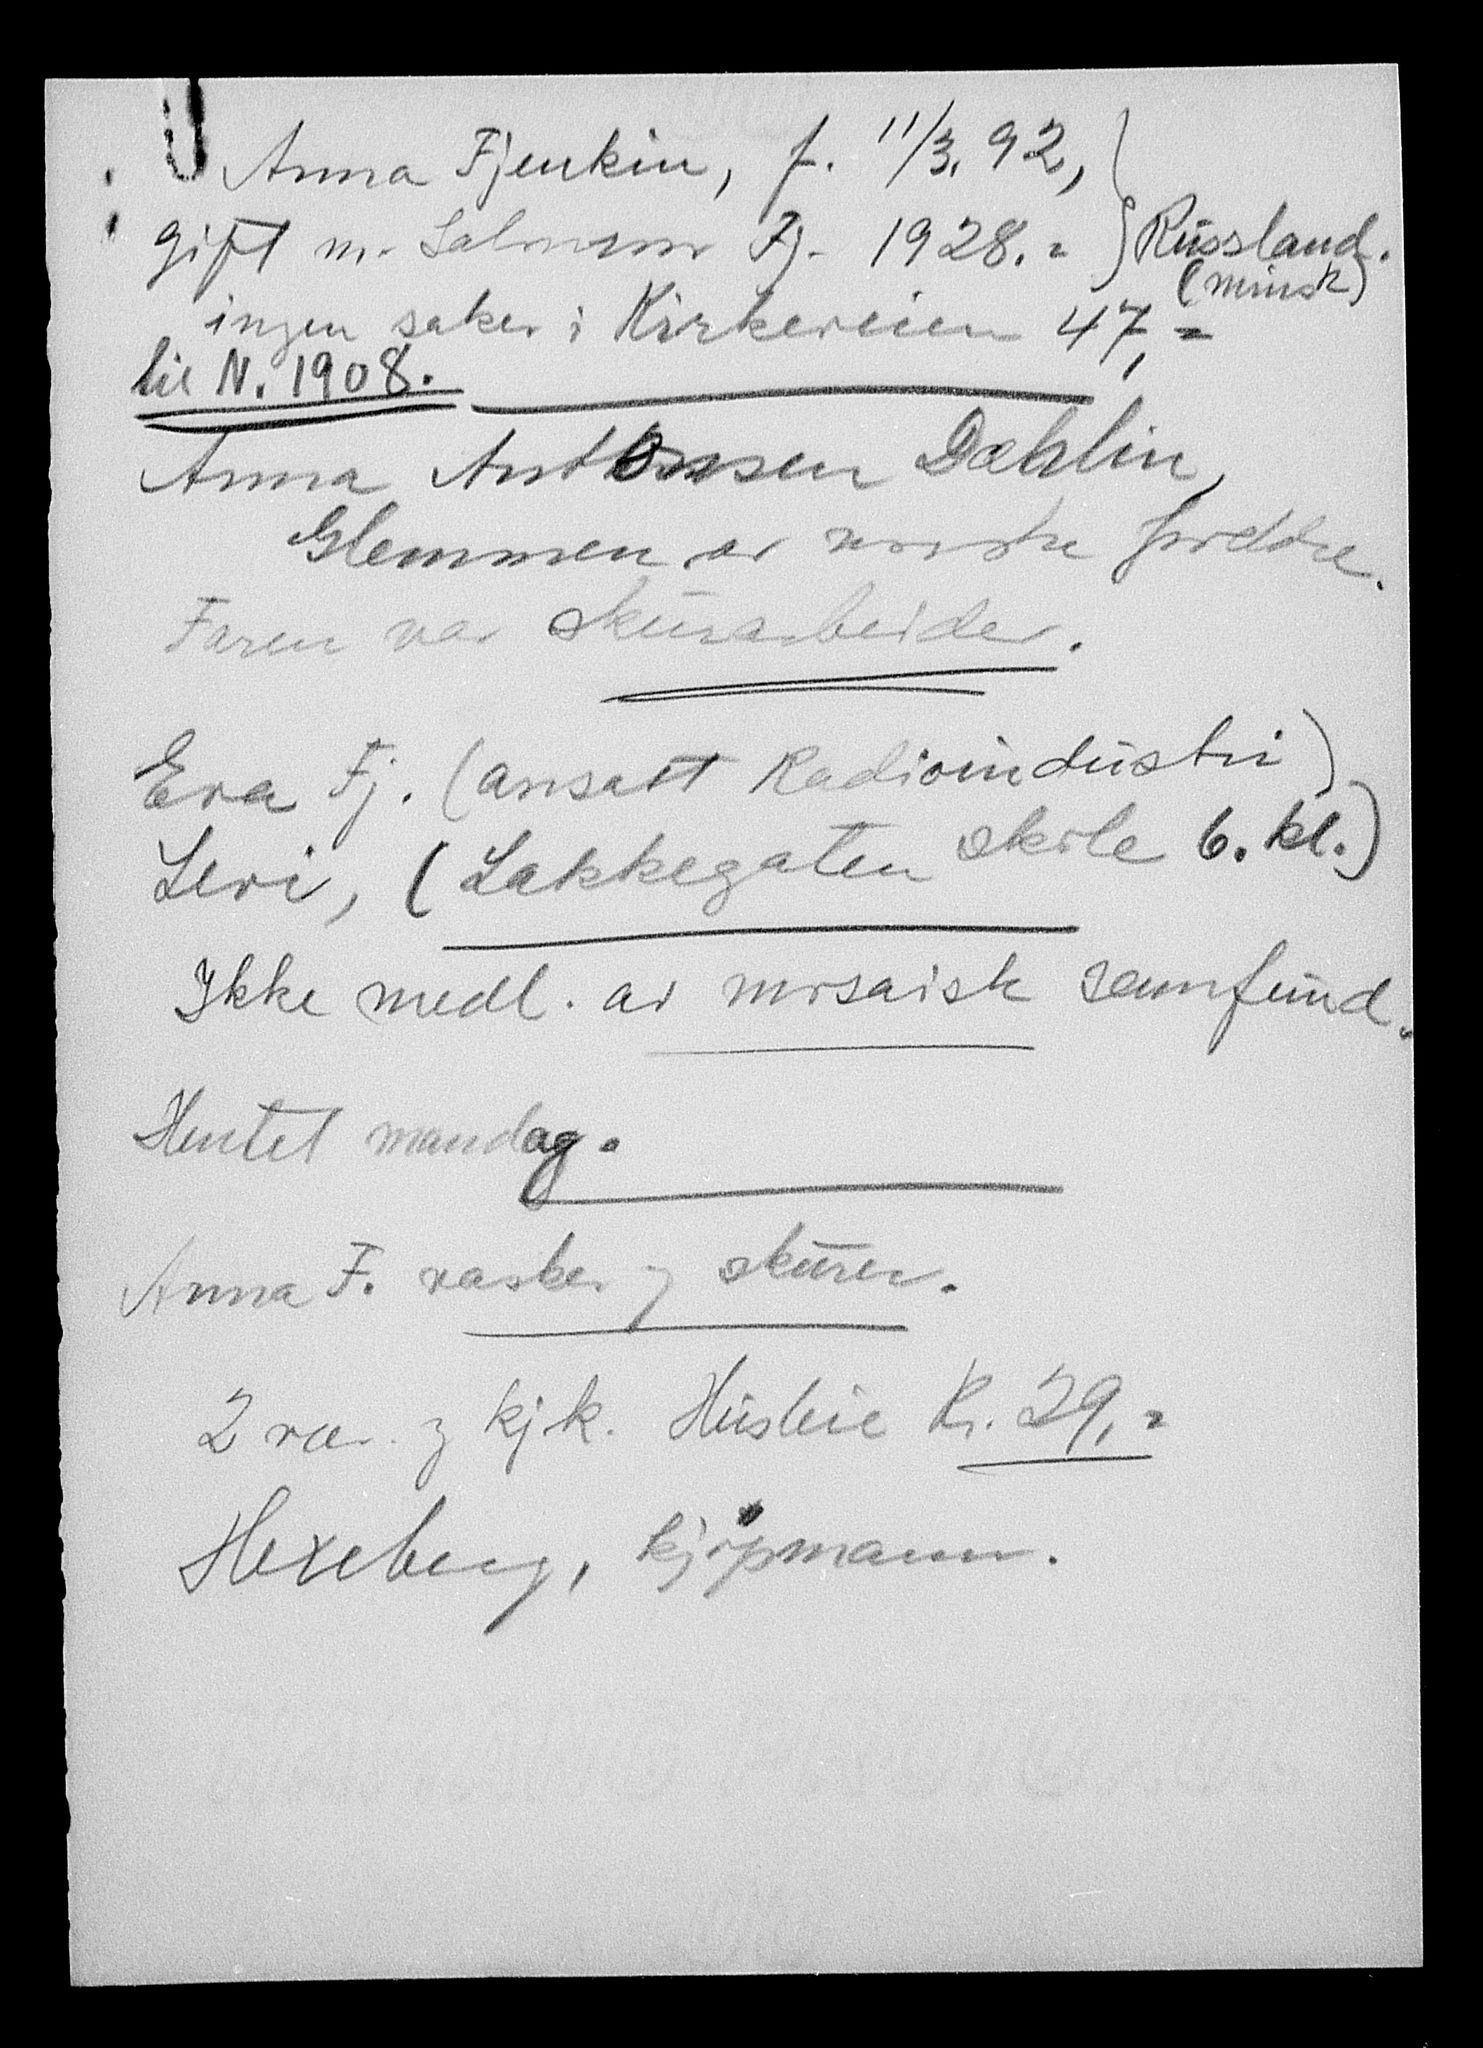 Anna Fjenkin, f. 11/3. 92,
gift m. Salomon Fj. 1928.= } Russland.
(Minsk)
ingen saker i Kirkeveien 47,=
til N. 1908.
Anna Antonsen Dahlin,
Glemmen av norske foreldre.
Faren var skurarbeider.
Eva Fj. (ansatt Radioindustri)
Levi, (Lakkegaten skole 6. kl.)
Ikke medl. av mosaisk samfund.
Hentet mandag.
Anna F. vasker og skurer.
2 vær. og kjk. Husleie Kr. 29,=
Hexeberg, kjøpmann.